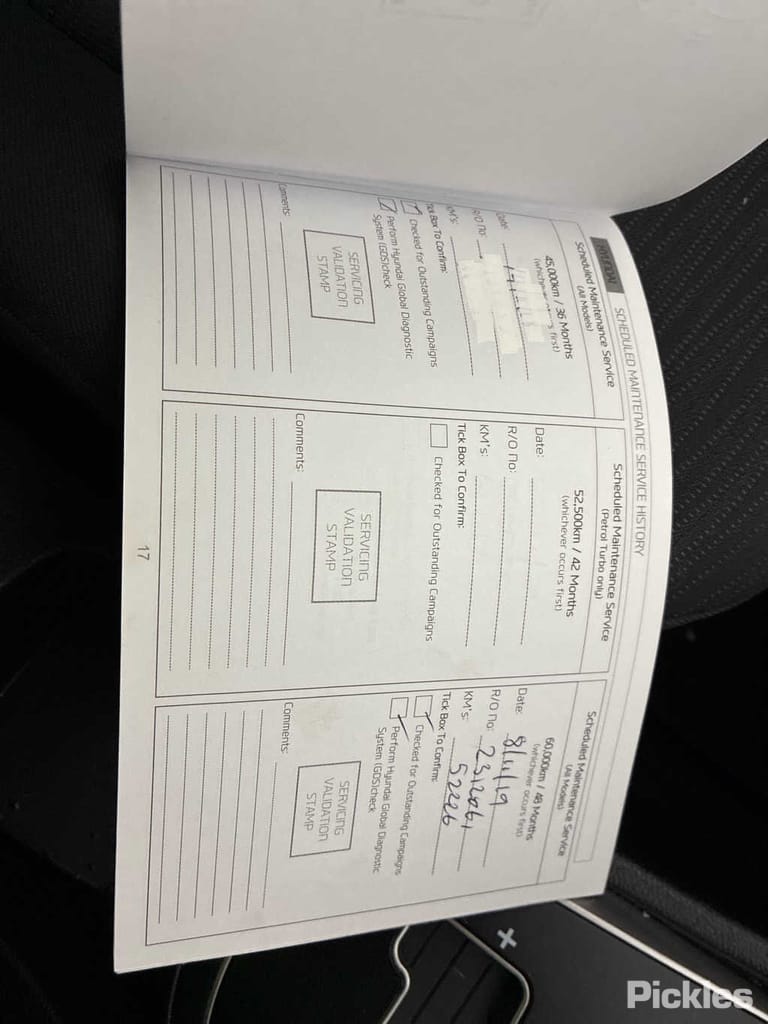 HYUNDAI SCHEDULED MAINTENANCE SERVICE HISTORY
Scheduled Maintenance Service
(All Models)
45,000km / 36 Months
(whichever occurs first)
Date:
R/O no:
KM's:
Tick Box To Confirm:
Checked for Outstanding Campaigns
Perform Hyundai Global Diagnostic
System (GDS)check
SERVICING
VALIDATION
STAMP
Comments:
Scheduled Maintenance Service
(Petrol Turbo only)
52,500km / 42 Months
(whichever occurs first)
Date:
R/O no:
KM's:
Tick Box To Confirm:
Checked for Outstanding Campaigns
SERVICING
VALIDATION
STAMP
Comments:
Scheduled Maintenance Service
(All Models)
60,000km / 48 Months
(whichever occurs first)
Date: 8/11/19
R/O no: 2312061
KM's: 52226
Tick Box To Confirm:
Checked for Outstanding Campaigns
Perform Hyundai Global Diagnostic
System (GDS)check
SERVICING
VALIDATION
STAMP
Comments:
17
Pickles